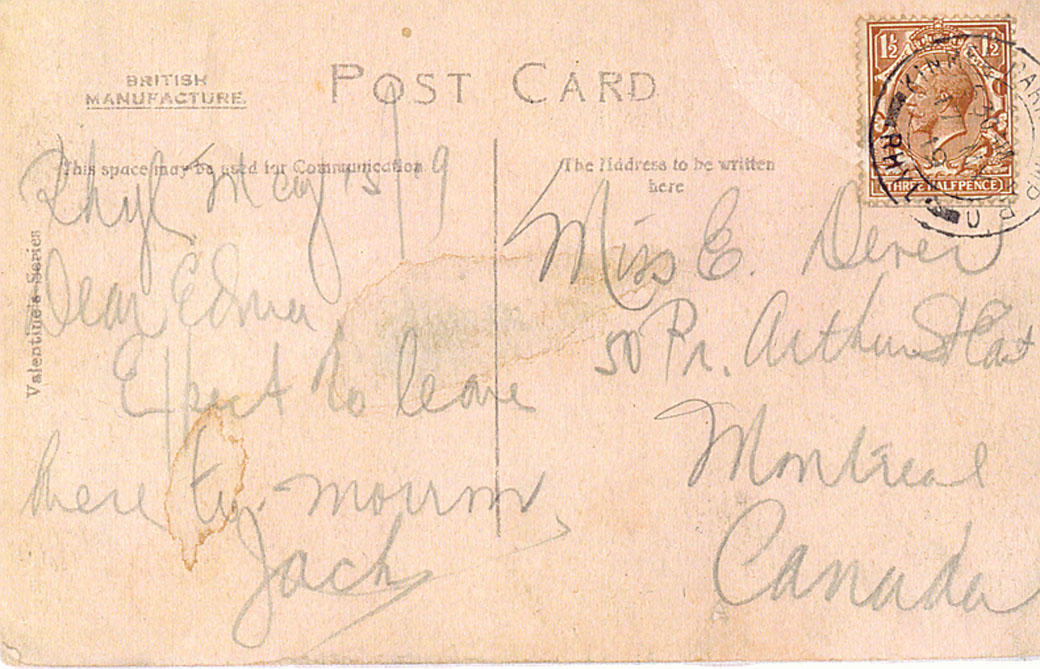 BRITISH
MANUFACTURE.
POST CARD
This space may be used for Communication
The Address to be written
here
Valentine's Series
1½ 1½
THREE HALFPENCE
KINMEL PARK CAMP P.O.
RHYL
Rhyl May 15/19
Dear Edna
Expect to leave
here to-morrow,
Jack
Miss E.
50 Pr. Arthur St East
Montreal
Canada